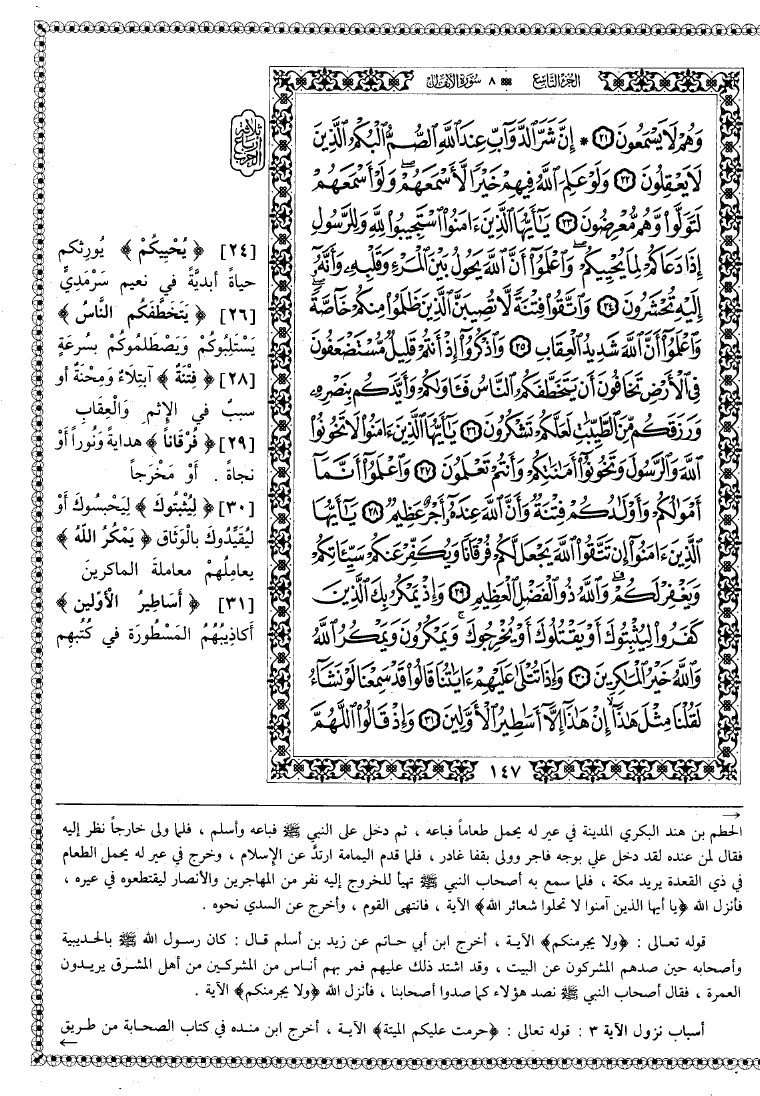 الجزء التاسع ٨ سورة الأنفال
وَهُمْ لَا يَسْمَعُونَ ٢١ * إِنَّ شَرَّ الدَّوَآبِّ عِندَ اللَّهِ الصُّمُّ الْبُكْمُ الَّذِينَ
لَا يَعْقِلُونَ ٢٢ وَلَوْ عَلِمَ اللَّهُ فِيهِمْ خَيْرًا لَّأَسْمَعَهُمْ وَلَوْ أَسْمَعَهُمْ
لَتَوَلَّوا وَّهُم مُّعْرِضُونَ ٢٣ يَٰٓأَيُّهَا الَّذِينَ ءَامَنُوا اسْتَجِيبُوا لِلَّهِ وَلِلرَّسُولِ
إِذَا دَعَاكُمْ لِمَا يُحْيِيكُمْ وَاعْلَمُوٓا أَنَّ اللَّهَ يَحُولُ بَيْنَ الْمَرْءِ وَقَلْبِهِۦ وَأَنَّهُۥٓ
إِلَيْهِ تُحْشَرُونَ ٢٤ وَاتَّقُوا فِتْنَةً لَّا تُصِيبَنَّ الَّذِينَ ظَلَمُوا مِنكُمْ خَآصَّةً
وَاعْلَمُوٓا أَنَّ اللَّهَ شَدِيدُ الْعِقَابِ ٢٥ وَاذْكُرُوٓا إِذْ أَنتُمْ قَلِيلٌ مُّسْتَضْعَفُونَ
فِي الْأَرْضِ تَخَافُونَ أَن يَتَخَطَّفَكُمُ النَّاسُ فَـَٔاوَىٰكُمْ وَأَيَّدَكُم بِنَصْرِهِۦ
وَرَزَقَكُم مِّنَ الطَّيِّبَٰتِ لَعَلَّكُمْ تَشْكُرُونَ ٢٦ يَٰٓأَيُّهَا الَّذِينَ ءَامَنُوا لَا تَخُونُوا
اللَّهَ وَالرَّسُولَ وَتَخُونُوٓا أَمَٰنَٰتِكُمْ وَأَنتُمْ تَعْلَمُونَ ٢٧ وَاعْلَمُوٓا أَنَّمَآ
أَمْوَٰلُكُمْ وَأَوْلَٰدُكُمْ فِتْنَةٌ وَأَنَّ اللَّهَ عِندَهُۥٓ أَجْرٌ عَظِيمٌ ٢٨ يَٰٓأَيُّهَا
الَّذِينَ ءَامَنُوٓا إِن تَتَّقُوا اللَّهَ يَجْعَل لَّكُمْ فُرْقَانًا وَيُكَفِّرْ عَنكُمْ سَيِّـَٔاتِكُمْ
وَيَغْفِرْ لَكُمْ وَاللَّهُ ذُو الْفَضْلِ الْعَظِيمِ ٢٩ وَإِذْ يَمْكُرُ بِكَ الَّذِينَ
كَفَرُوا لِيُثْبِتُوكَ أَوْ يَقْتُلُوكَ أَوْ يُخْرِجُوكَ وَيَمْكُرُونَ وَيَمْكُرُ اللَّهُ
وَاللَّهُ خَيْرُ الْمَٰكِرِينَ ٣٠ وَإِذَا تُتْلَىٰ عَلَيْهِمْ ءَايَٰتُنَا قَالُوا قَدْ سَمِعْنَا لَوْ نَشَآءُ
لَقُلْنَا مِثْلَ هَٰذَآ إِنْ هَٰذَآ إِلَّآ أَسَٰطِيرُ الْأَوَّلِينَ ٣١ وَإِذْ قَالُوا اللَّهُمَّ
١٤٧
ثلاثة
أرباع
الحزب
[٢٤] ﴿ يُحْيِيكُمْ ﴾ يُورِثكم
حياةً أبديَّةً في نعيم سَرْمَدِيٍّ
[٢٦] ﴿ يَتَخَطَّفَكُم النَّاسُ ﴾
يَسْتَلِبُوكُمْ وَيَصْطَلِمُوكُمْ بسُرعَةٍ
[٢٨] ﴿ فِتْنَةٌ ﴾ آبتِلاَءٌ وَمِحْنَةٌ أو
سببٌ في الإثمِ وَالْعِقَابِ
[٢٩] ﴿ فُرْقَاناً ﴾ هدايةً وَنُوراً أَوْ
نجاةً . أَوْ مَخْرَجاً
[٣٠] ﴿ لِيُثْبِتُوكَ ﴾ لِيَحْبِسُوكَ أَوْ
لِيُقَيِّدُوكَ بِالْوَثَاقِ ﴿ يَمْكُرُ اللَّهُ ﴾
يعامِلُهمْ معاملةَ الماكرينَ
[٣١] ﴿ أَسَاطِيرُ الأَوّلين ﴾
أكاذِيبُهُمُ المَسْطُورَة في كُتُبهم
الحطم بن هند البكري المدينة في عير له يحمل طعاماً فباعه ، ثم دخل على النبي ﷺ فباعه وأسلم ، فلما ولى خارجاً نظر إليه
فقال لمن عنده لقد دخل علي بوجه فاجر وولى بقفا غادر ، فلما قدم اليمامة ارتدَّ عن الإسلام ، وخرج في عير له يحمل الطعام
في ذي القعدة يريد مكة ، فلما سمع به أصحاب النبي ﷺ تهيأ للخروج إليه نفر من المهاجرين والأنصار ليقتطعوه في عيره ،
فأنزل الله ﴿يا أيها الذين آمنوا لا تحلوا شعائر الله﴾ الآية ، فانتهى القوم ، وأخرج عن السدي نحوه .
قوله تعالى : ﴿ولا يجرمنكم﴾ الآية ، أخرج ابن أبي حاتم عن زيد بن أسلم قال : كان رسول الله ﷺ بالحديبية
وأصحابه حين صدهم المشركون عن البيت ، وقد اشتد ذلك عليهم فمر بهم أناس من المشركين من أهل المشرق يريدون
العمرة ، فقال أصحاب النبي ﷺ نصد هؤلاء كما صدوا أصحابنا ، فأنزل الله ﴿ولا يجرمنكم﴾ الآية .
أسباب نزول الآية ٣ : قوله تعالى : ﴿حرمت عليكم الميتة﴾ الآية ، أخرج ابن منده في كتاب الصحابة من طريق